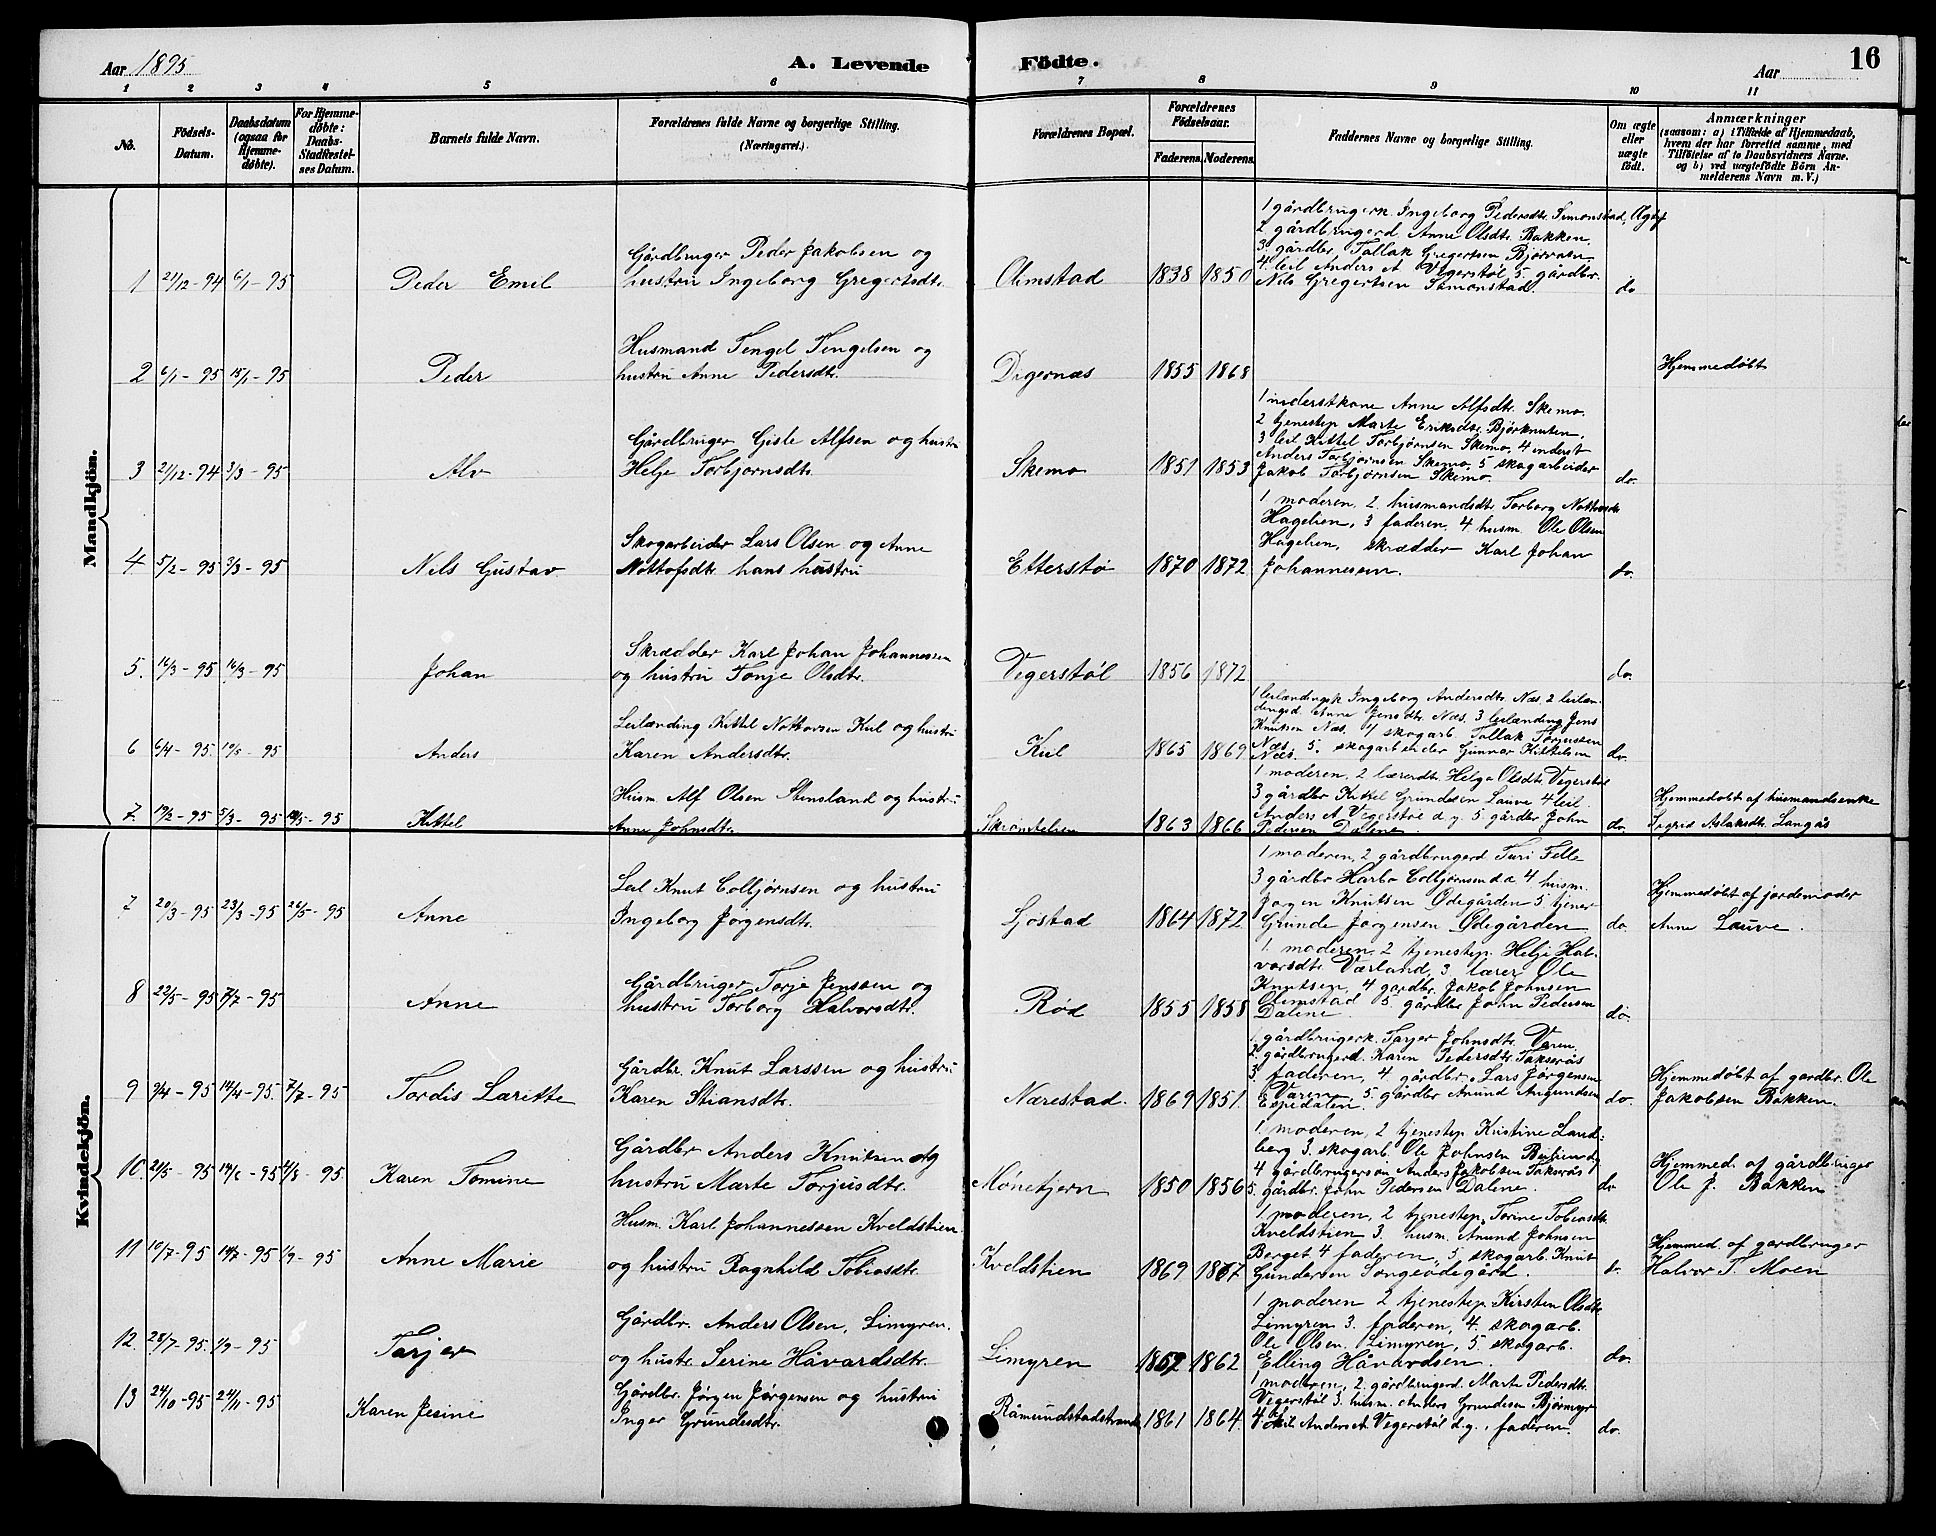 Aar 1895
A. Levende Födte.
Aar
16
1 2 3 4 5 6 7 8 9 10 11
No. Födsels-Datum. Daabsdatum (ogsaa for Hjemmedøbte). For Hjemmedøbte: Daabs-Stadfæstelses Datum. Barnets fulde Navn. Forældrenes fulde Navne og borgerlige Stilling. (Næringsvei.) Forældrenes Bopæl. Forældrenes Födselsaar. Faderens. Moderens. Faddernes Navne og borgerlige Stilling. Om ægte eller uægte födt. Anmærkninger (saasom: a) i Tilfælde af Hjemmedaab, hvem der har forrettet samme, med Tilföielse af to Daabsvidners Navne, og b) ved uægtefödte Börn Anmelderens Navn m. V.)
Mandkjön.
1 gårdbrugerk. Ingeborg Pedersdtr. Simonstad, Ægtef
2 gårdbrugerd Anne Olsdtr. Bakken,
Gårdbruger Peder Jakobsen og
3 gårdbr. Tallak Gregertsen Bjørvasn
4. leil Anders A Vegerstøl, 5. gårdbr.
1 21/12-94 6/1-95 Peder Emil hustru Ingeborg Gregertsdtr. Olimstad 1838 1850 Nils Gregertsen Simonstad. do
Husmand Tengel Tengelsen og
2 6/1-95 15/1-95 Peder hustru Anne Pedersdtr. Digernæs 1855 1868 Hjemmedøbt
1 inderstkone Anne Alfsdtr. Skemo.
2 tjenestep Marte Eriksdtr. Bjørknuten,
Gårdbruger Gisle Alfsen og hustru
3 leil Kittel Torbjørnsen Skemo, 4 inderst
Anders Torbjørnsen Skemo, 5 skogarbeider
3 21/12-94 3/3-95 Alv Helje Torbjørnsdtr. Skemo 1851 1853 Jakob Torbjørnsen Skemo. do.
1 moderen, 2. husmandsdtr Torborg
Hagelien, 3 faderen, 4 husm. Ole Olsen
Skogarbeider Lars Olsen og Anne
Hagelien, skrædder Karl Johan
4 5/2-95 3/3-95 Nils Gustav Nottofsdtr. hans hustru Etterstø 1870 1872 Johannesen. do.
Skrædder Karl Johan Johannessen
5. 16/3-95 16/3-95 Johan og hustru Tonje Olsdtr. Vegerstøl 1856 1872 do.
1 leilændingsk Ingeborg Andersdtr. Næs. 2 leilæn-
dingsd. Anne Jensdtr. Næs. 3 leilænding Jens
Leilænding Kittel Nottovsen Kil og hustru
Knutsen Næs. 4 skogarb. Tallak Torjussen
6 6/4-95 -95 Anders Karen Andersdtr. Kil 1865 1869 Næs, 5. skogarbeider Gunnar Kittelsen do.
Næs.
1 moderen, 2 lærerdtr. Helga Olsdtr. Vegerstøl
Husm. Alf Olsen Stensland og hustru
3 gårdbr Kittel Grundesen Lauve 4 leil.
Hjemmedøbt af husmandsenke
Anders A Vegerstøl d. y. 5. gårdbr John
7 19/2-95 5/3-95 -95 Kittel Anne Johnsdtr. 1863 1866 Pedersen Dalene do. Sigrid Aslaksdtr. Langås
Kvindekjön.
1 moderen, 2 gårdbrugerd. Turi Felle
3 gårdbr Harbo Colbjørnsen d.æ 4 husm.
Leil Knut Colbjørnsen og hustru
Jørgen Knutsen Ødegården 5 tjener
Hjemmedøbt af jordemoder
7 20/3-95 23/3-95 26/5-95 Anne Ingeborg Jørgensdtr. Sjøstad 1864 1872 Grunde Jørgensen Ødegården do. Anne Lauve.
1. moderen, 2 tjenestep. Helje Hal-
vorsdtr. Værland, 3 lærer Ole
Gårdbruger Torje Jenssen og
Knutsen, 4 gårdbr. Jakob Johnsen
Olimstad 5 gårdbr John Pedersen
8 22/5-95 7/7-95 Anne hustru Torborg Halvorsdtr. Rød 1855 1858 Dalene. do.
1 gårdbrugerk. Tarjer Johnsdtr. Væren
2. gårdbrugerd. Karen Pedersdtr. Takserås
Gårdbr. Knut Larssen og hustru
3. faderen, 4 gårdbr. Lars Jørgensen
Hjemmedøbt af gårdbr. Ole
Væren. 5. gårdbr Amund Amundsen
9 3/4-95 14/4-95 7/7-95 Tordis Larette Karen Stiansdtr. Nærestad. 1869 1851. Espedalen. do. Jakobsen Bakken.
1. moderen, 2 tjenestep Kristine Land-
berg 3. skogarb. Ole Johnsen
Gårdbr Anders Knutsen og
4 gårdbrugersøn Anders Jakobsen Takserås
Hjemmed. af gårdbruger
10. 21/5-95 -95 4/8-95. Karen Tomine hustru Marte Torjusdtr. Mønetjern 1850 1856 5. gårdbr. John Pedersen Dalene. do Ole J. Bakken
Husm. Karl Johannessen Kveldstien
1. moderen, 2 tjenestep. Torine Tobiasdtr.
Kveldstien 3. husm. Amund Johnsen
Berget 4 faderen, 5 skogarb. Knut
Hjemmed. af gårdbruger
11 10/7-95 14/7-95 1/9-95 Anne Marie og hustru Ragnhild Tobiasdtr. Kveldstien 1869 1867 Gundersen Songeødegård. do. Halvor T. Moen
Gårdbr. Anders Olsen, Limyren.
1 moderen 2 tjenestep. Kirsten Olsdtr.
Limyren 3. faderen, 4. skogarb.
Ole Olsen, Limyren, 5. skogarb.
12. 28/7-95. 1/9-95 Tarjer og hustr. Serine Håvardsdtr. Limyren 1862 Elling Håvardsen. do.
Gårdbr. Jørgen Jørgensen og hustru
1 moderen, 2. gårdbrugerd. Marte Pedersdtr.
Vegerstøl 3. husm. Anders Grundesen Bjørmyr
13 24/10-95 24/11-95 Karen Jesine Inger Grundesdtr. Råmundstadstrand 1861 1864. 4 leil Anders A Vegerstøl d.y., faderen. do.